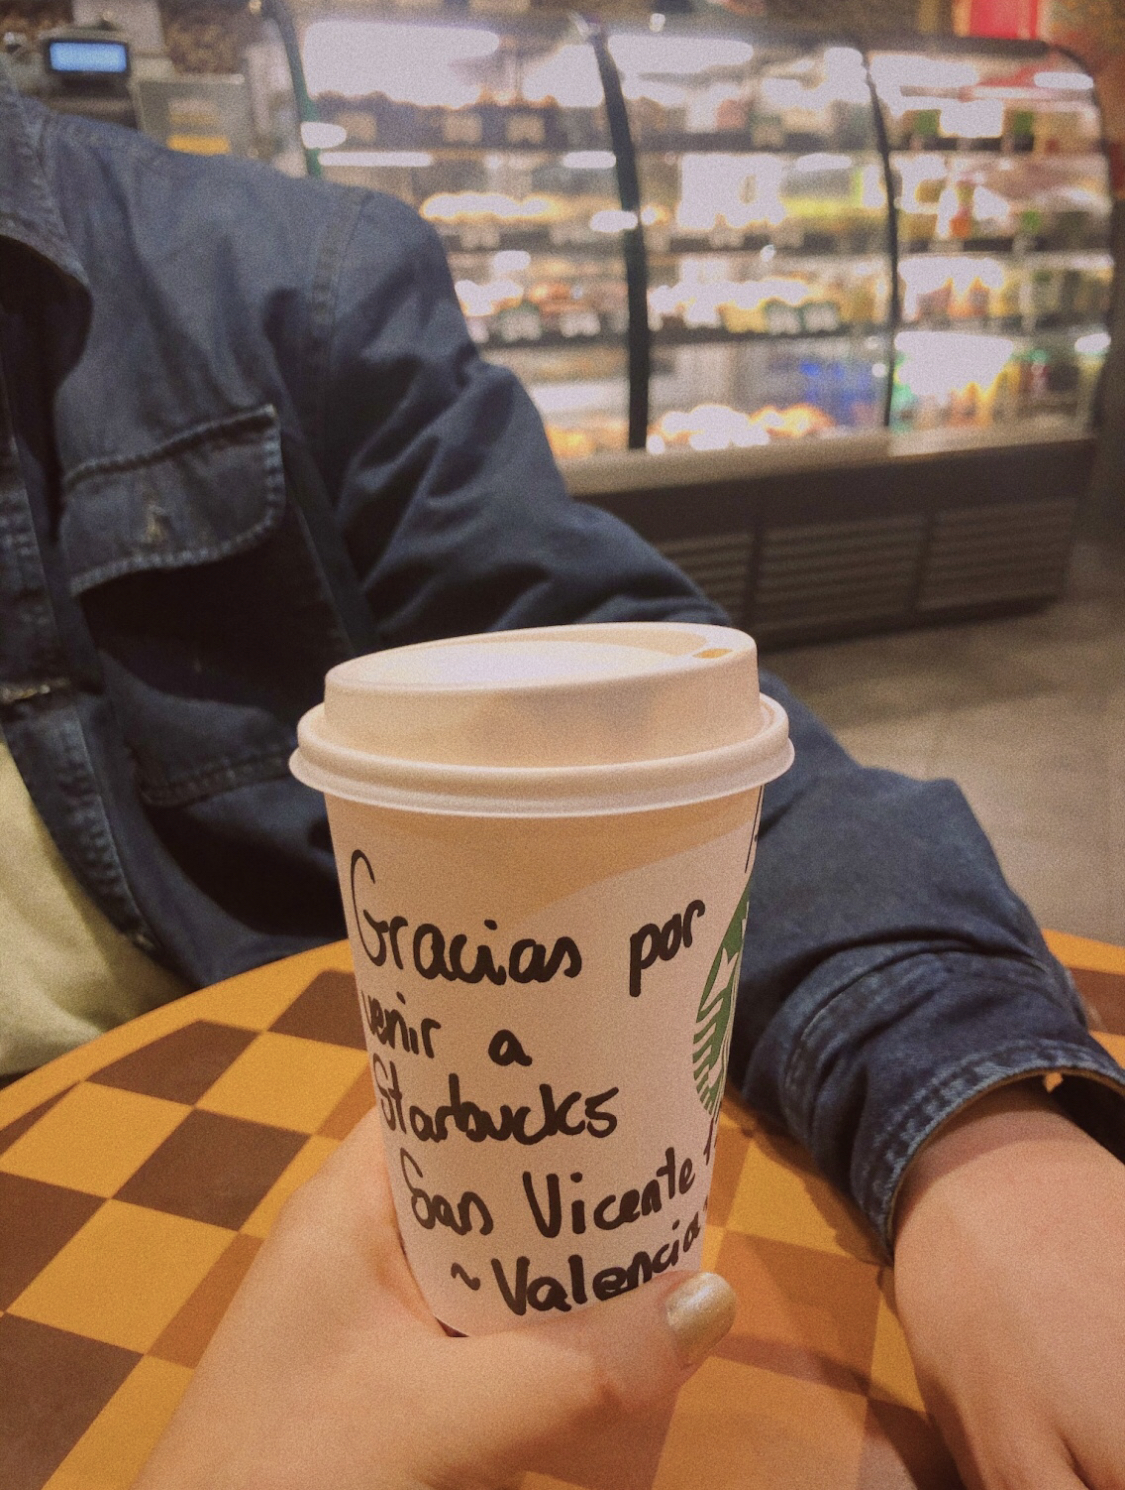 Gracias por
venir a
Starbucks
San Vicente
~Valencia